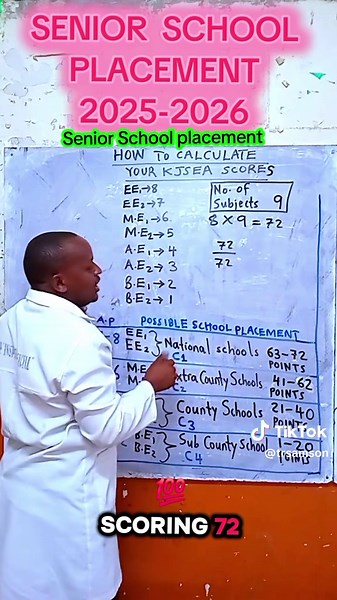 SENIOR SCHOOL
PLACEMENT
2025-2026
Senior School placement
HOW TO CALCULATE
YOUR KJSEA SCORES
EE1→8
EE2→7
M·E1→6
M·E2→5
A·E1→4
A·E2→3
B·E1→2
B·E2→1
No. of
Subjects 9
8 × 9 = 72
72
72
A.P POSSIBLE SCHOOL PLACEMENT
8 EE1
EE2 } National schools 63-72
C1 POINTS
6 M·E
Extra County Schools 41-62
C2 POINTS
} County Schools 21-40
C3
B·E1
B·E2 } Sub County School 1-20
C4 POINTS
TikTok
@trsamson
100
SCORING 72